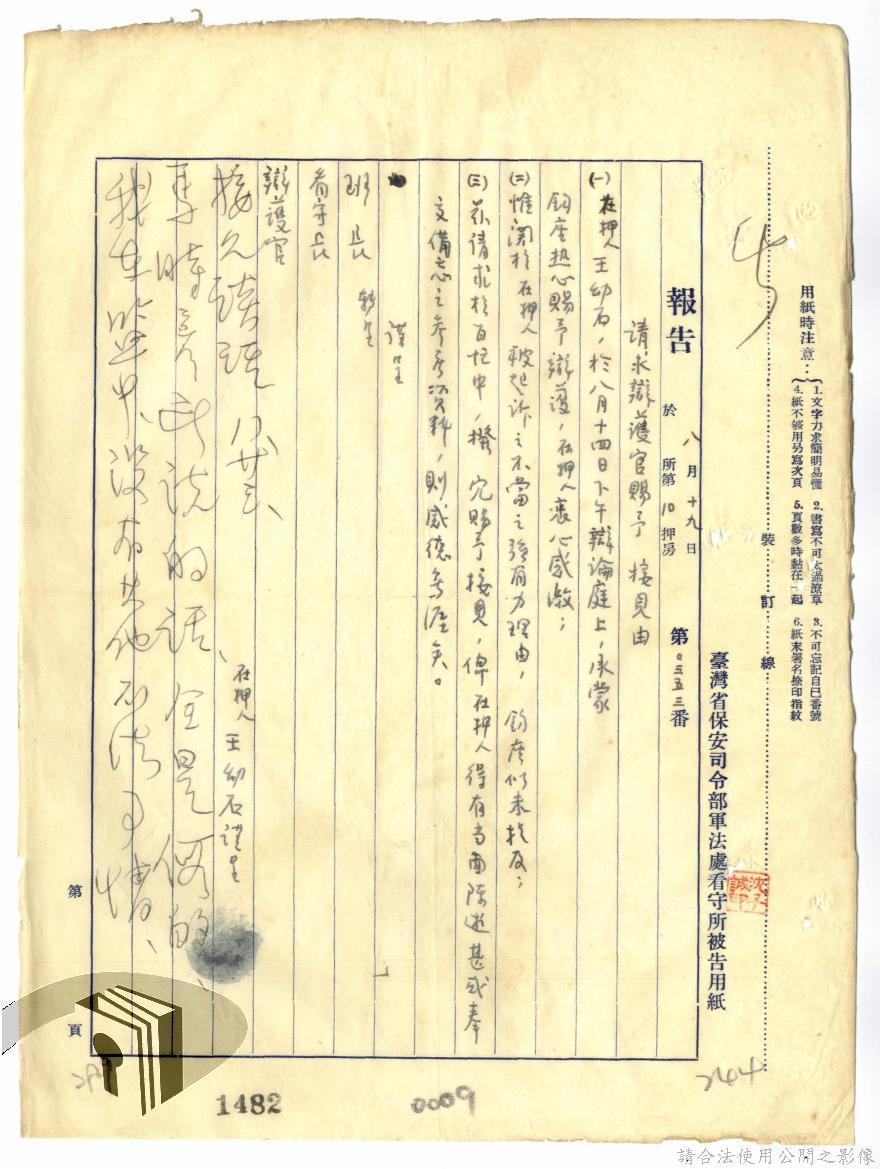 用紙時注意：
1. 文字力求簡明易懂 2. 書寫不可太過潦草 3. 不可忘記自已番號
4. 紙不够用另寫次頁 5. 頁數多時黏在一起 6. 紙末署名捺印指紋
裝訂線
臺灣省保安司令部軍法處看守所被告用紙
報告 於 八月十九日 所第10押房 第0三五三番
請求辯護官賜予 接見由
(一) 在押人王幼石，於八月十四日下午辯論庭上，承蒙
鈞座热心賜予辯護，在押人衷心感激；
(二) 惟關於在押人被起诉之不當之強有力理由，鈞座似未提及；
(三) 茲請求於百忙中，撥冗賜予接見，俾在押人得有当面陈述甚或奉
文備忘之参考資料，則感德無涯矣。
謹呈
班長 轉呈
看守長
辯護官
在押人 王幼石謹呈
接見談話
我在 中、沒有其他不法事情、
第 頁
1482
0009
244
請合法使用公開之影像